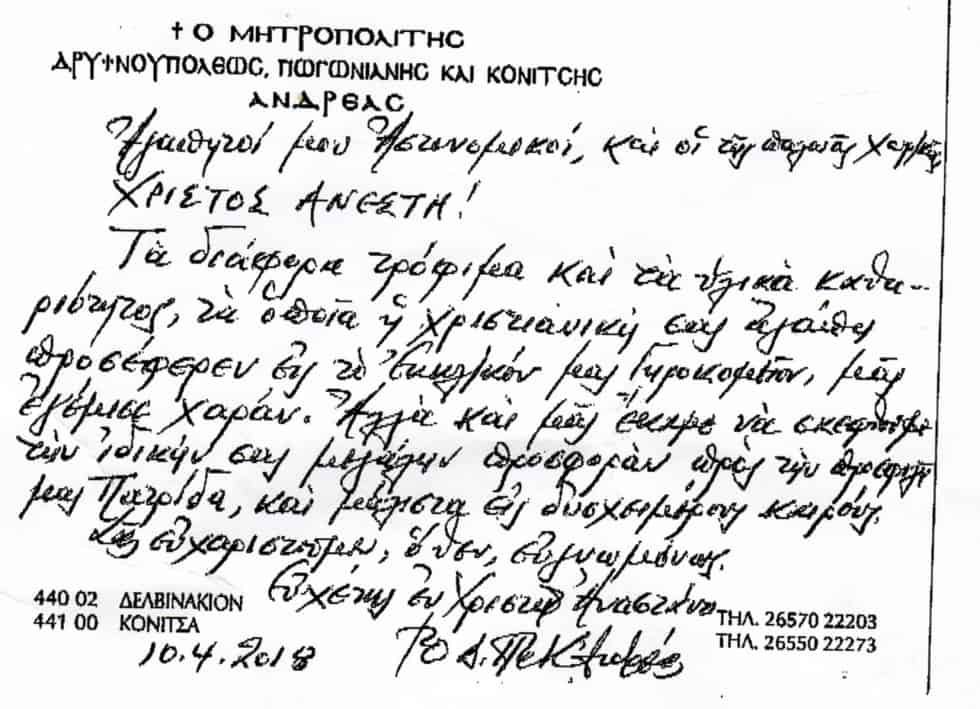 † Ο ΜΗΤΡΟΠΟΛΙΤΗΣ
ΔΡΥΪΝΟΥΠΟΛΕΩΣ, ΠΩΓΩΝΙΑΝΗΣ ΚΑΙ ΚΟΝΙΤΣΗΣ
ΑΝΔΡΕΑΣ
Ἀγαπητοί μου Ἀστυνομικοί, καί οἱ τῆς παλαιᾶς
ΧΡΙΣΤΟΣ ΑΝΕΣΤΗ!
Τὰ διάφορα τρόφιμα καί τὰ ὑλικὰ καθα-
ριότητος, τὰ ὁποῖα ἡ χριστιανική σας ἀγάπη
προσέφερεν εἰς τὸ Ἐκκλ/κόν μας Γηροκομεῖον, μᾶς
ἐγέμισε χαράν. Ἀλλὰ καί μᾶς ἔκαμε νὰ σκεφθοῦμε
τὴν ἰδικήν σας μεγάλην προσφορὰν πρὸς τὴν προσφιλῆ
μας Πατρίδα, καί μάλιστα εἰς δυσχειμέρους καιρούς.
Σᾶς εὐχαριστοῦμεν, ὅθεν, εὐγνωμόνως.
Εὐχέτης ἐν Χριστῷ Ἀναστάντι
440 02 ΔΕΛΒΙΝΑΚΙΟΝ
441 00 ΚΟΝΙΤΣΑ
ΤΗΛ. 26570 22203
ΤΗΛ. 26550 22273
10.4.2018
† Ὁ Δ. Π. κ Κ. Ἀνδρέας